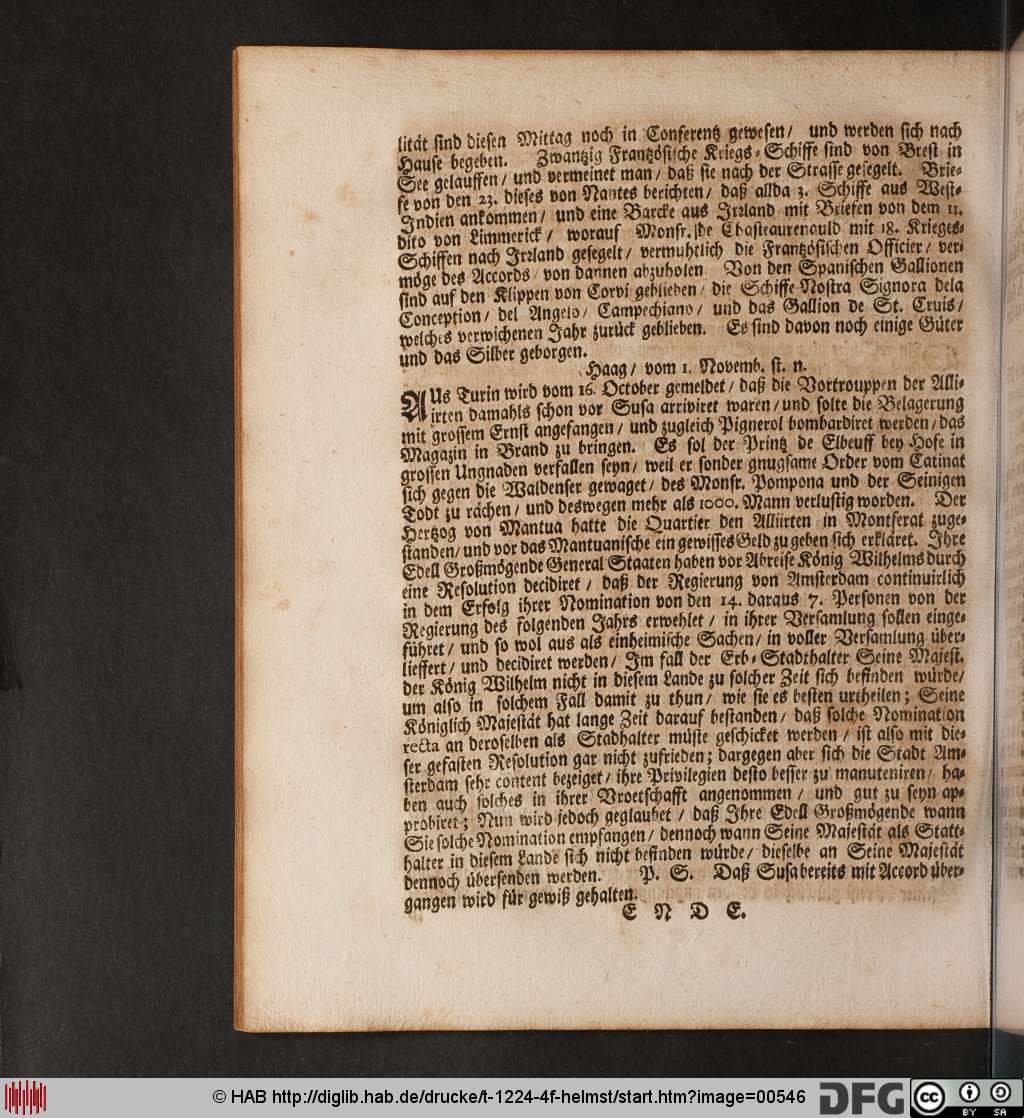 lität sind diesen Mittag noch in Conferentz gewesen/ und werden sich nach
Hause begeben. Zwantzig Frantzösische Kriegs-Schiffe sind von Brest in
See gelauffen/ und vermeinet man/ daß sie nach der Strasse gesegelt. Brie-
fe von den 23. dieses von Nantes berichten/ daß allda 3. Schiffe aus West-
Indien ankommen/ und eine Barcke aus Irrland mit Briefen von dem 11.
dito von Limmerick/ worauf Monsr. de Chasteaurenould mit 18. Krieges-
Schiffen nach Irrland gesegelt/ vermuhtlich die Frantzösischen Officier/ ver-
möge des Accords/ von dannen abzuholen Von den Spanischen Gallionen
sind auf den Klippen von Corvi geblieben/ die Schiffe Nostra Signora dela
Conception/ del Angelo/ Campechiano/ und das Gallion de St. Cruis/
welches verwichenen Jahr zurück geblieben. Es sind davon noch einige Güter
und das Silber geborgen.
Haag/ vom 1. Novemb. st. n.
AUs Turin wird vom 16. October gemeldet/ daß die Vortrouppen der Alli-
irten damahls schon vor Susa arriviret waren/ und solte die Belagerung
mit grossem Ernst angefangen/ und zugleich Pignerol bombardiret werden/ das
Magazin in Brand zu bringen. Es sol der Printz de Elbeuff bey Hofe in
grossen Ungnaden verfallen seyn/ weil er sonder gnugsame Order vom Catinat
sich gegen die Waldenser gewaget/ des Monsr. Pompona und der Seinigen
Todt zu rächen/ und deswegen mehr als 1000. Mann verlustig worden. Der
Hertzog von Mantua hatte die Quartier den Alliirten in Montferat zuge-
standen/ und vor das Mantuanische ein gewisses Geld zu geben sich erkläret. Ihre
Edell Großmögende General Staaten haben vor Abreise König Wilhelms durch
eine Resolution decidiret/ daß der Regierung von Amsterdam continuirlich
in dem Erfolg ihrer Nomination von den 14. daraus 7. Personen von der
Regierung des folgenden Jahrs erwehlet/ in ihrer Versamlung sollen einge-
führet/ und so wol aus als einheimische Sachen/ in voller Versamlung über-
lieffert/ und decidiret werden/ Im fall der Erb-Stadthalter Seine Majest.
der König Wilhelm nicht in diesem Lande zu solcher Zeit sich befinden würde/
um also in solchem Fall damit zu thun/ wie sie es besten urtheilen; Seine
Königlich Majestät hat lange Zeit darauf bestanden/ daß solche Nomination
recta an deroselben als Stadhalter müste geschicket werden/ ist also mit die-
ser gefasten Resolution gar nicht zufrieden; dargegen aber sich die Stadt Am-
sterdam sehr content bezeiget/ ihre Privilegien desto besser zu manuteniren/ ha-
ben auch solches in ihrer Vroetschafft angenommen/ und gut zu seyn ap-
probiret; Nun wird jedoch geglaubet/ daß Ihre Edell Großmögende wann
Sie solche Nomination empfangen/ dennoch wann Seine Majestät als Statt-
halter in diesem Lande sich nicht befinden würde/ dieselbe an Seine Majestät
dennoch übersenden werden. P. S. Daß Susa bereits mit Accord über-
gangen wird für gewiß gehalten.
E N D E.
© HAB http://diglib.hab.de/drucke/t-1224-4f-helmst/start.htm?image=00546
DFG
cc BY SA